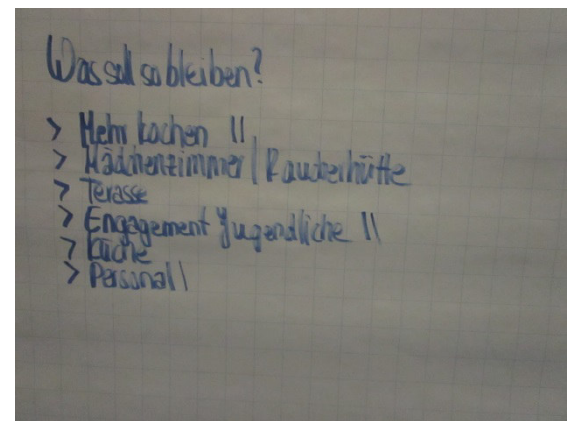 Was soll so bleiben?
> Mehr kochen ||
> Mädchenzimmer | Räuberhütte
> Terasse
> Engagement Jugendliche ||
> Küche
> Personal |